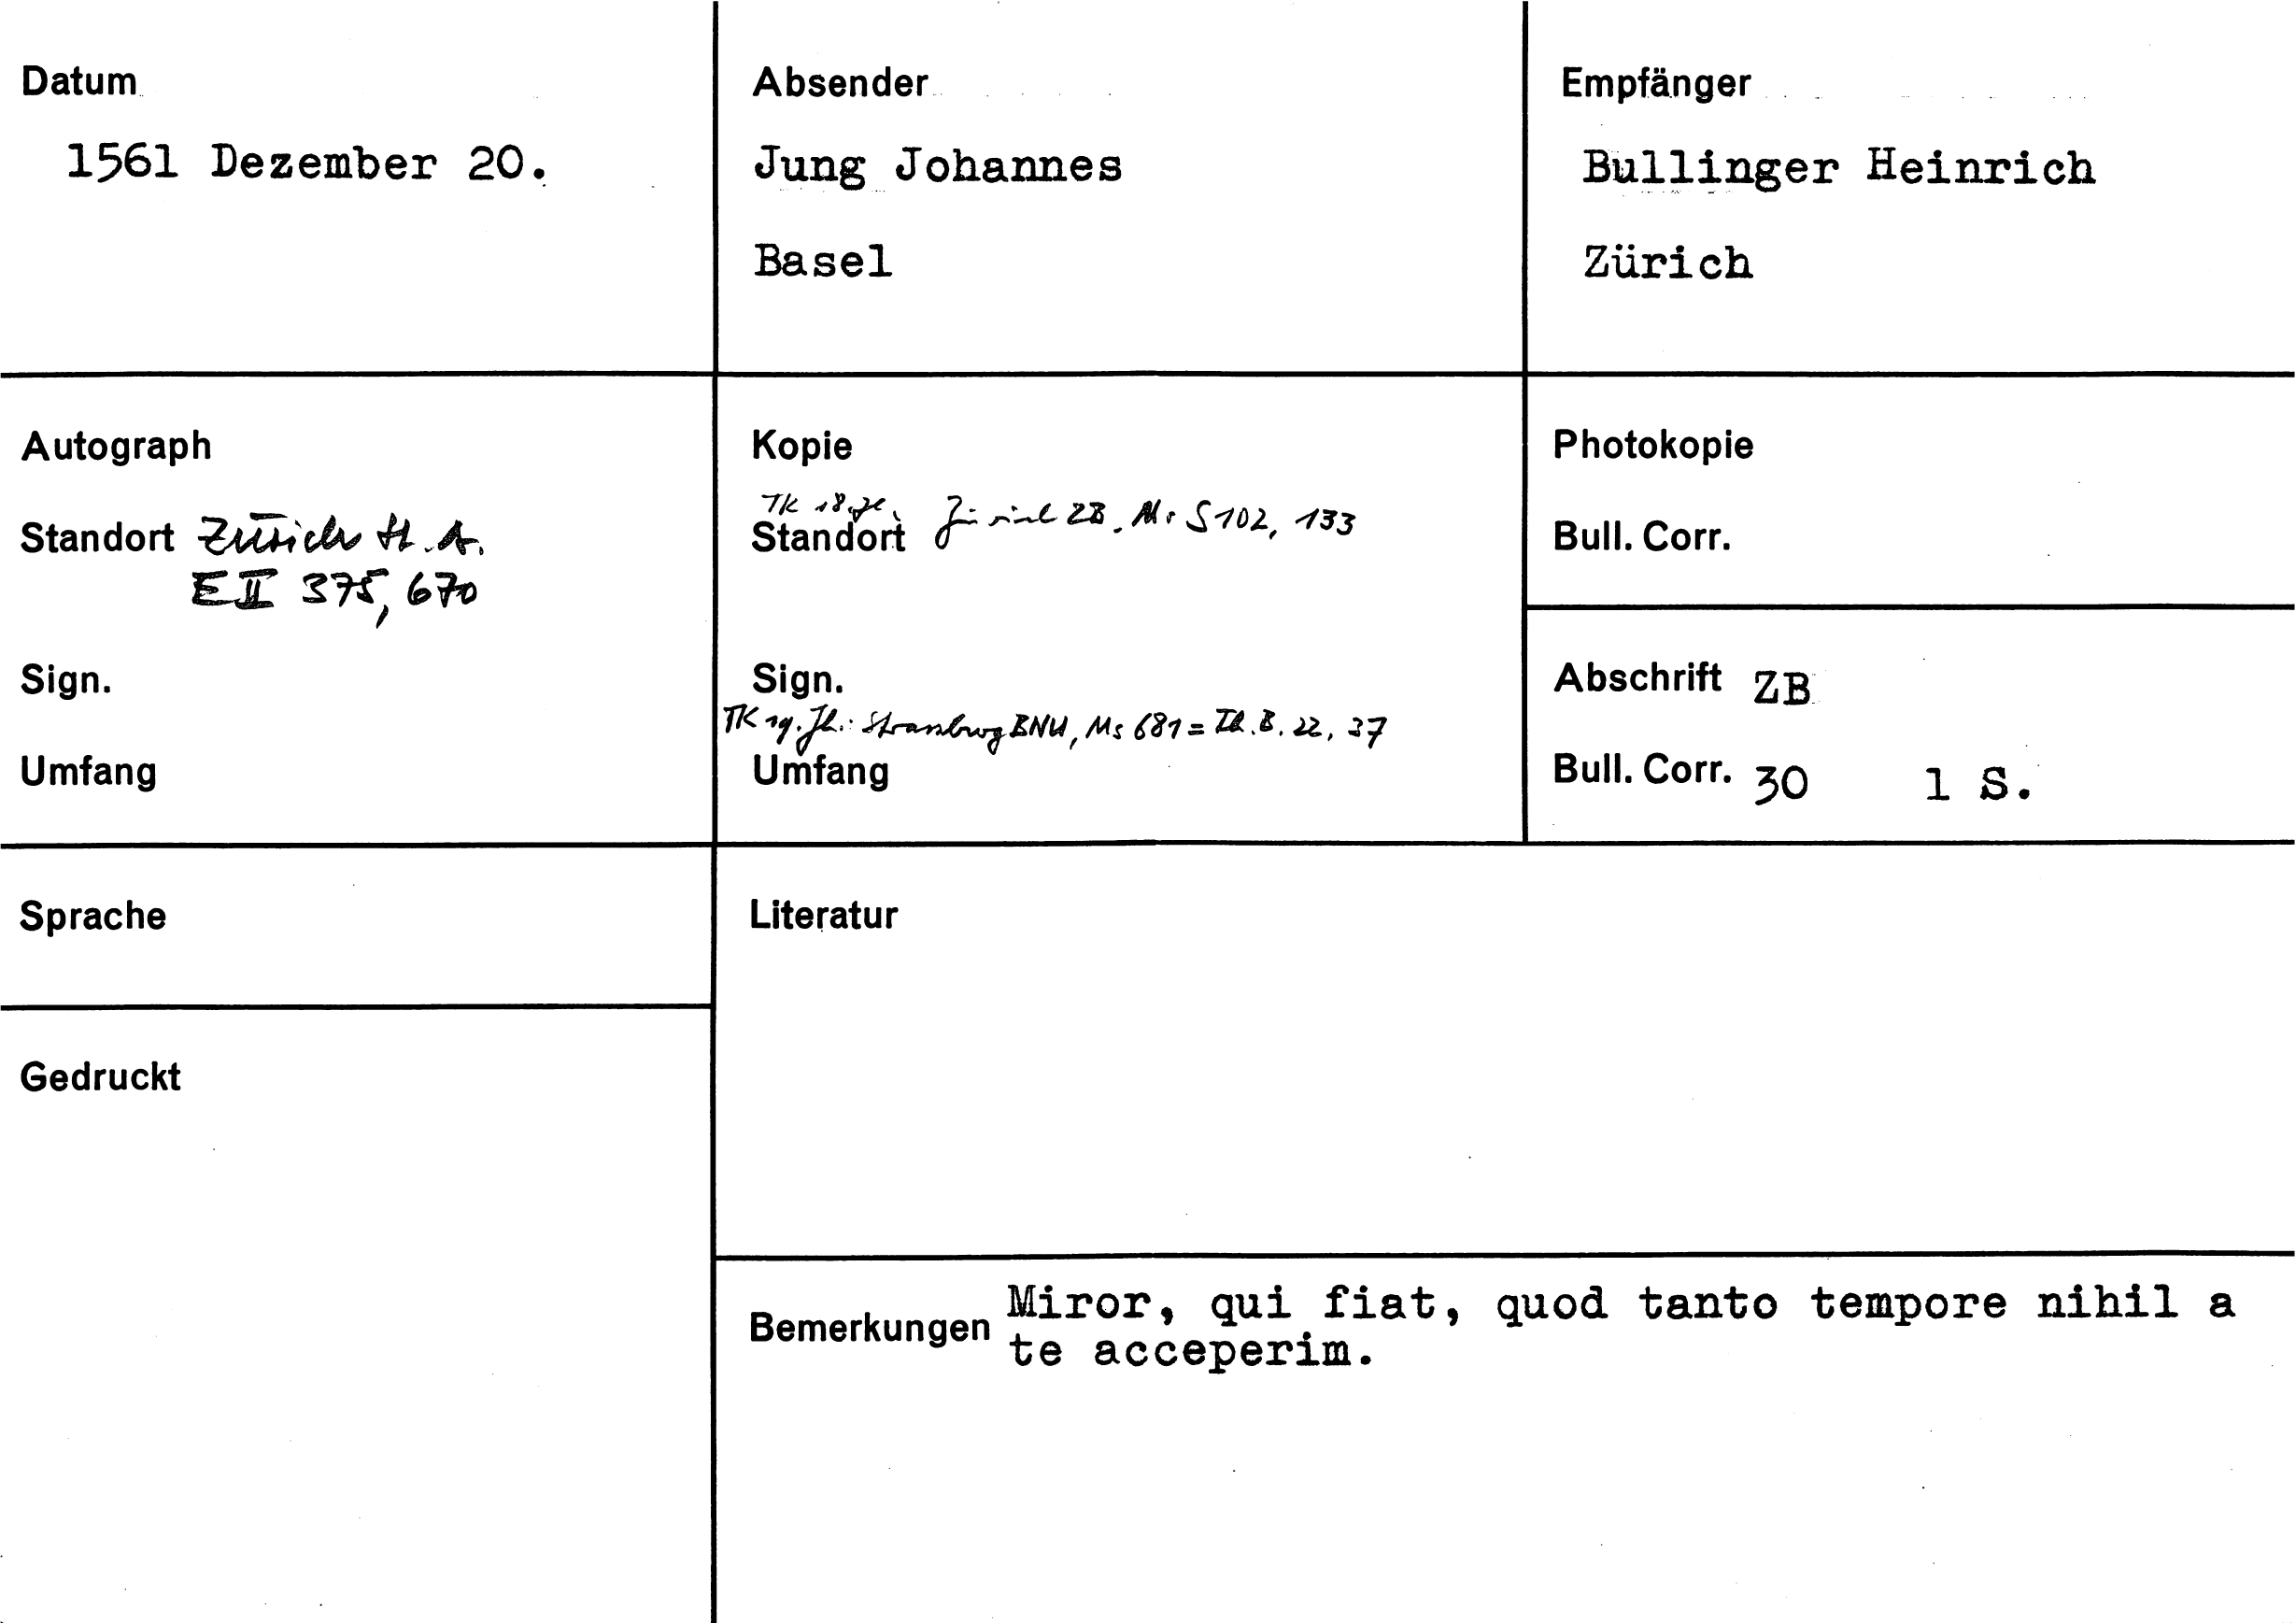 Datum
1561 Dezember 20.
Absender
Jung Johannes
Basel
Empfänger
Bullinger Heinrich
Zürich
Autograph
Standort Zürich St. A.
E II 375, 670
Sign.
Umfang
Kopie
TK 18. Jh.
Standort Zürich ZB, Ms S 102, 133
Sign.
TK 19. Jh.: Strassburg BNU, Ms 681 = Th. B. 22, 37
Umfang
Photokopie
Bull. Corr.
Abschrift ZB
Bull. Corr. 30 1 S.
Sprache
Gedruckt
Literatur
Bemerkungen Miror, qui fiat, quod tanto tempore nihil a
te acceperim.